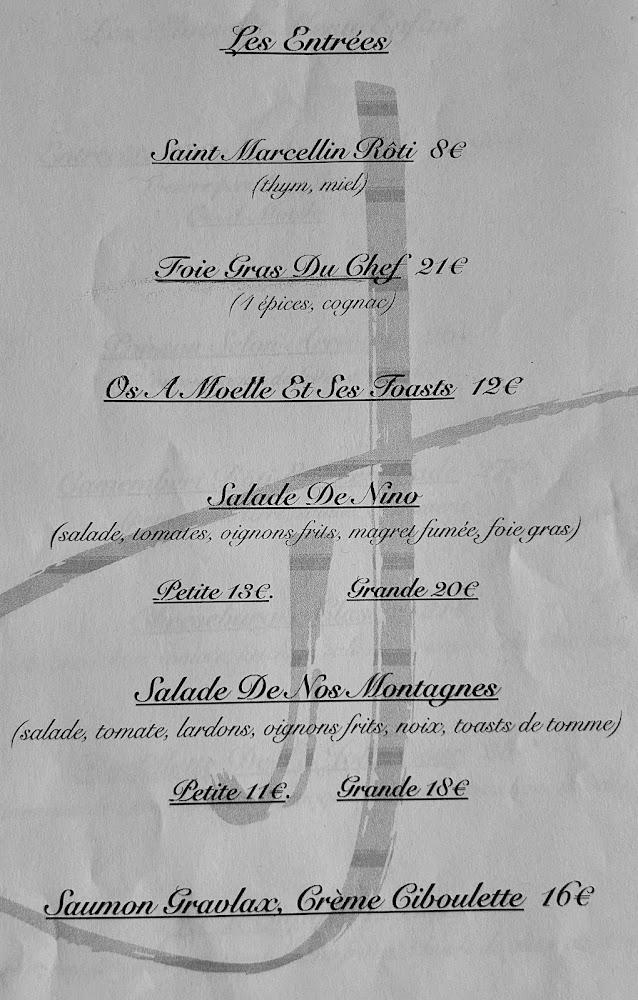 Les Entrées
Saint Marcellin Rôti 8€
(thym, miel)
Foie Gras Du Chef 21€
(4 épices, cognac)
Os A Moelle Et Ses Toasts 12€
Salade De Nino
(salade, tomates, oignons frits, magret fumée, foie gras)
Petite 13€. Grande 20€
Salade De Nos Montagnes
(salade, tomate, lardons, oignons frits, noix, toasts de tomme)
Petite 11€. Grande 18€
Saumon Gravlax, Crème Ciboulette 16€